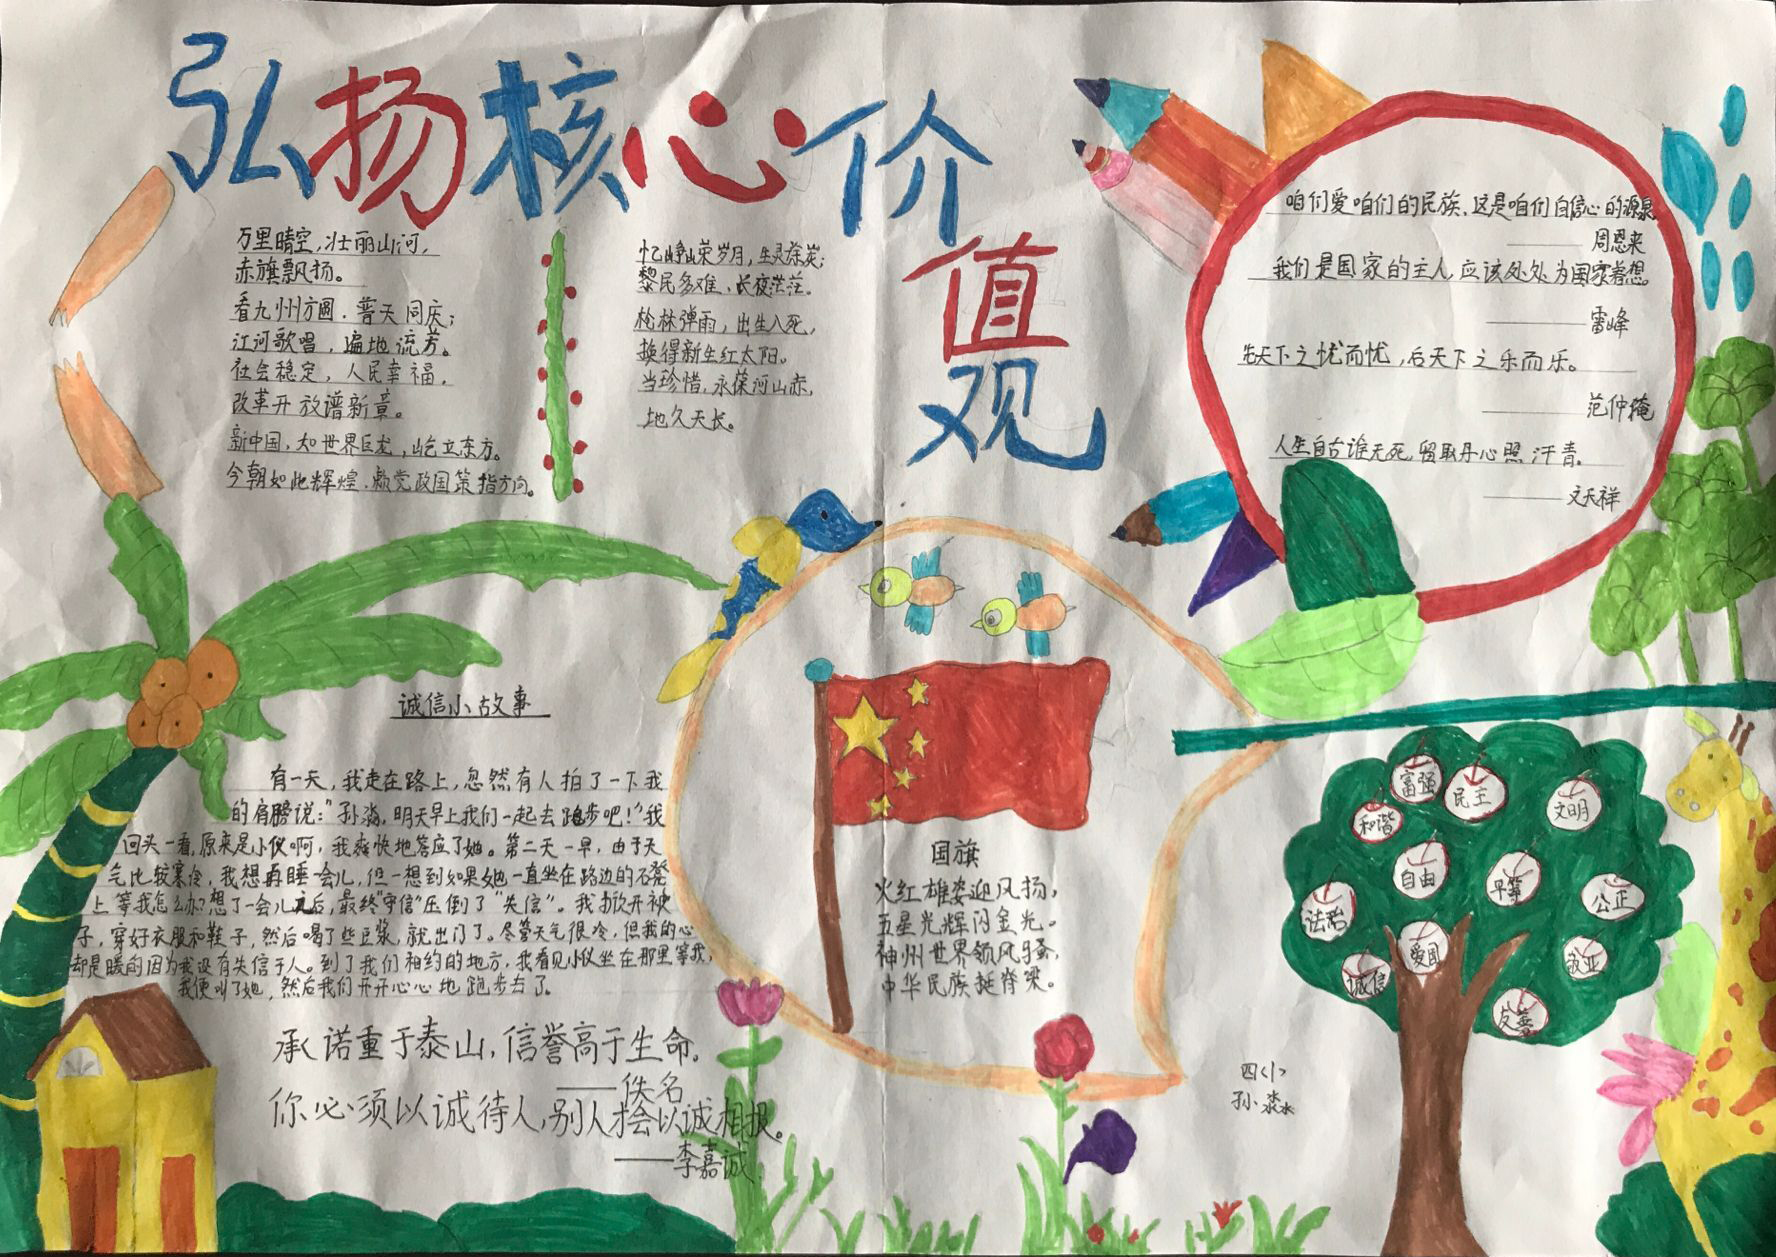 弘扬核心价值观
万里晴空,壮丽山河,
赤旗飘扬。
看九州方圆,普天同庆;
江河歌唱,遍地流芳。
社会稳定,人民幸福,
改革开放谱新章。
新中国,如世界巨龙,屹立东方。
今朝如此辉煌,赖党政国策指方向。
忆峥嵘岁月,生灵涂炭;
黎民多难、长夜茫茫。
枪林弹雨,出生入死,
换得新生红太阳。
当珍惜,永葆河山赤,
地久天长。
咱们爱咱们的民族,这是咱们自信心的源泉
——周恩来
我们是国家的主人,应该处处为国家着想。
——雷峰
先天下之忧而忧,后天下之乐而乐。
——范仲掩
人生自古谁无死,留取丹心照汗青。
——文天祥
诚信小故事
有一天,我走在路上,忽然有人拍了一下我
的肩膀说:"孙淼,明天早上我们一起去跑步吧!"我
回头一看,原来是小仪啊,我爽快地答应了她。第二天一早,由于天
气比较寒冷,我想再睡一会儿,但一想到如果她一直坐在路边的石凳
上等我怎么办?想了一会儿后,最终"守信"压倒了"失信"。我掀开被
子,穿好衣服和鞋子,然后喝了些豆浆,就出门了。尽管天气很冷,但我的心
却是暖的因为我没有失信于人。到了我们相约的地方,我看见小仪坐在那里等我,
我便叫了她,然后我们开开心心地跑步去了。
承诺重于泰山,信誉高于生命。
——佚名
你必须以诚待人,别人才会以诚相报。
——李嘉诚
国旗
火红雄姿迎风扬,
五星光辉闪金光。
神州世界领风骚,
中华民族挺脊梁。
富强
民主
文明
和谐
自由
平等
公正
法治
爱国
敬业
诚信
友善
四<1>
孙淼